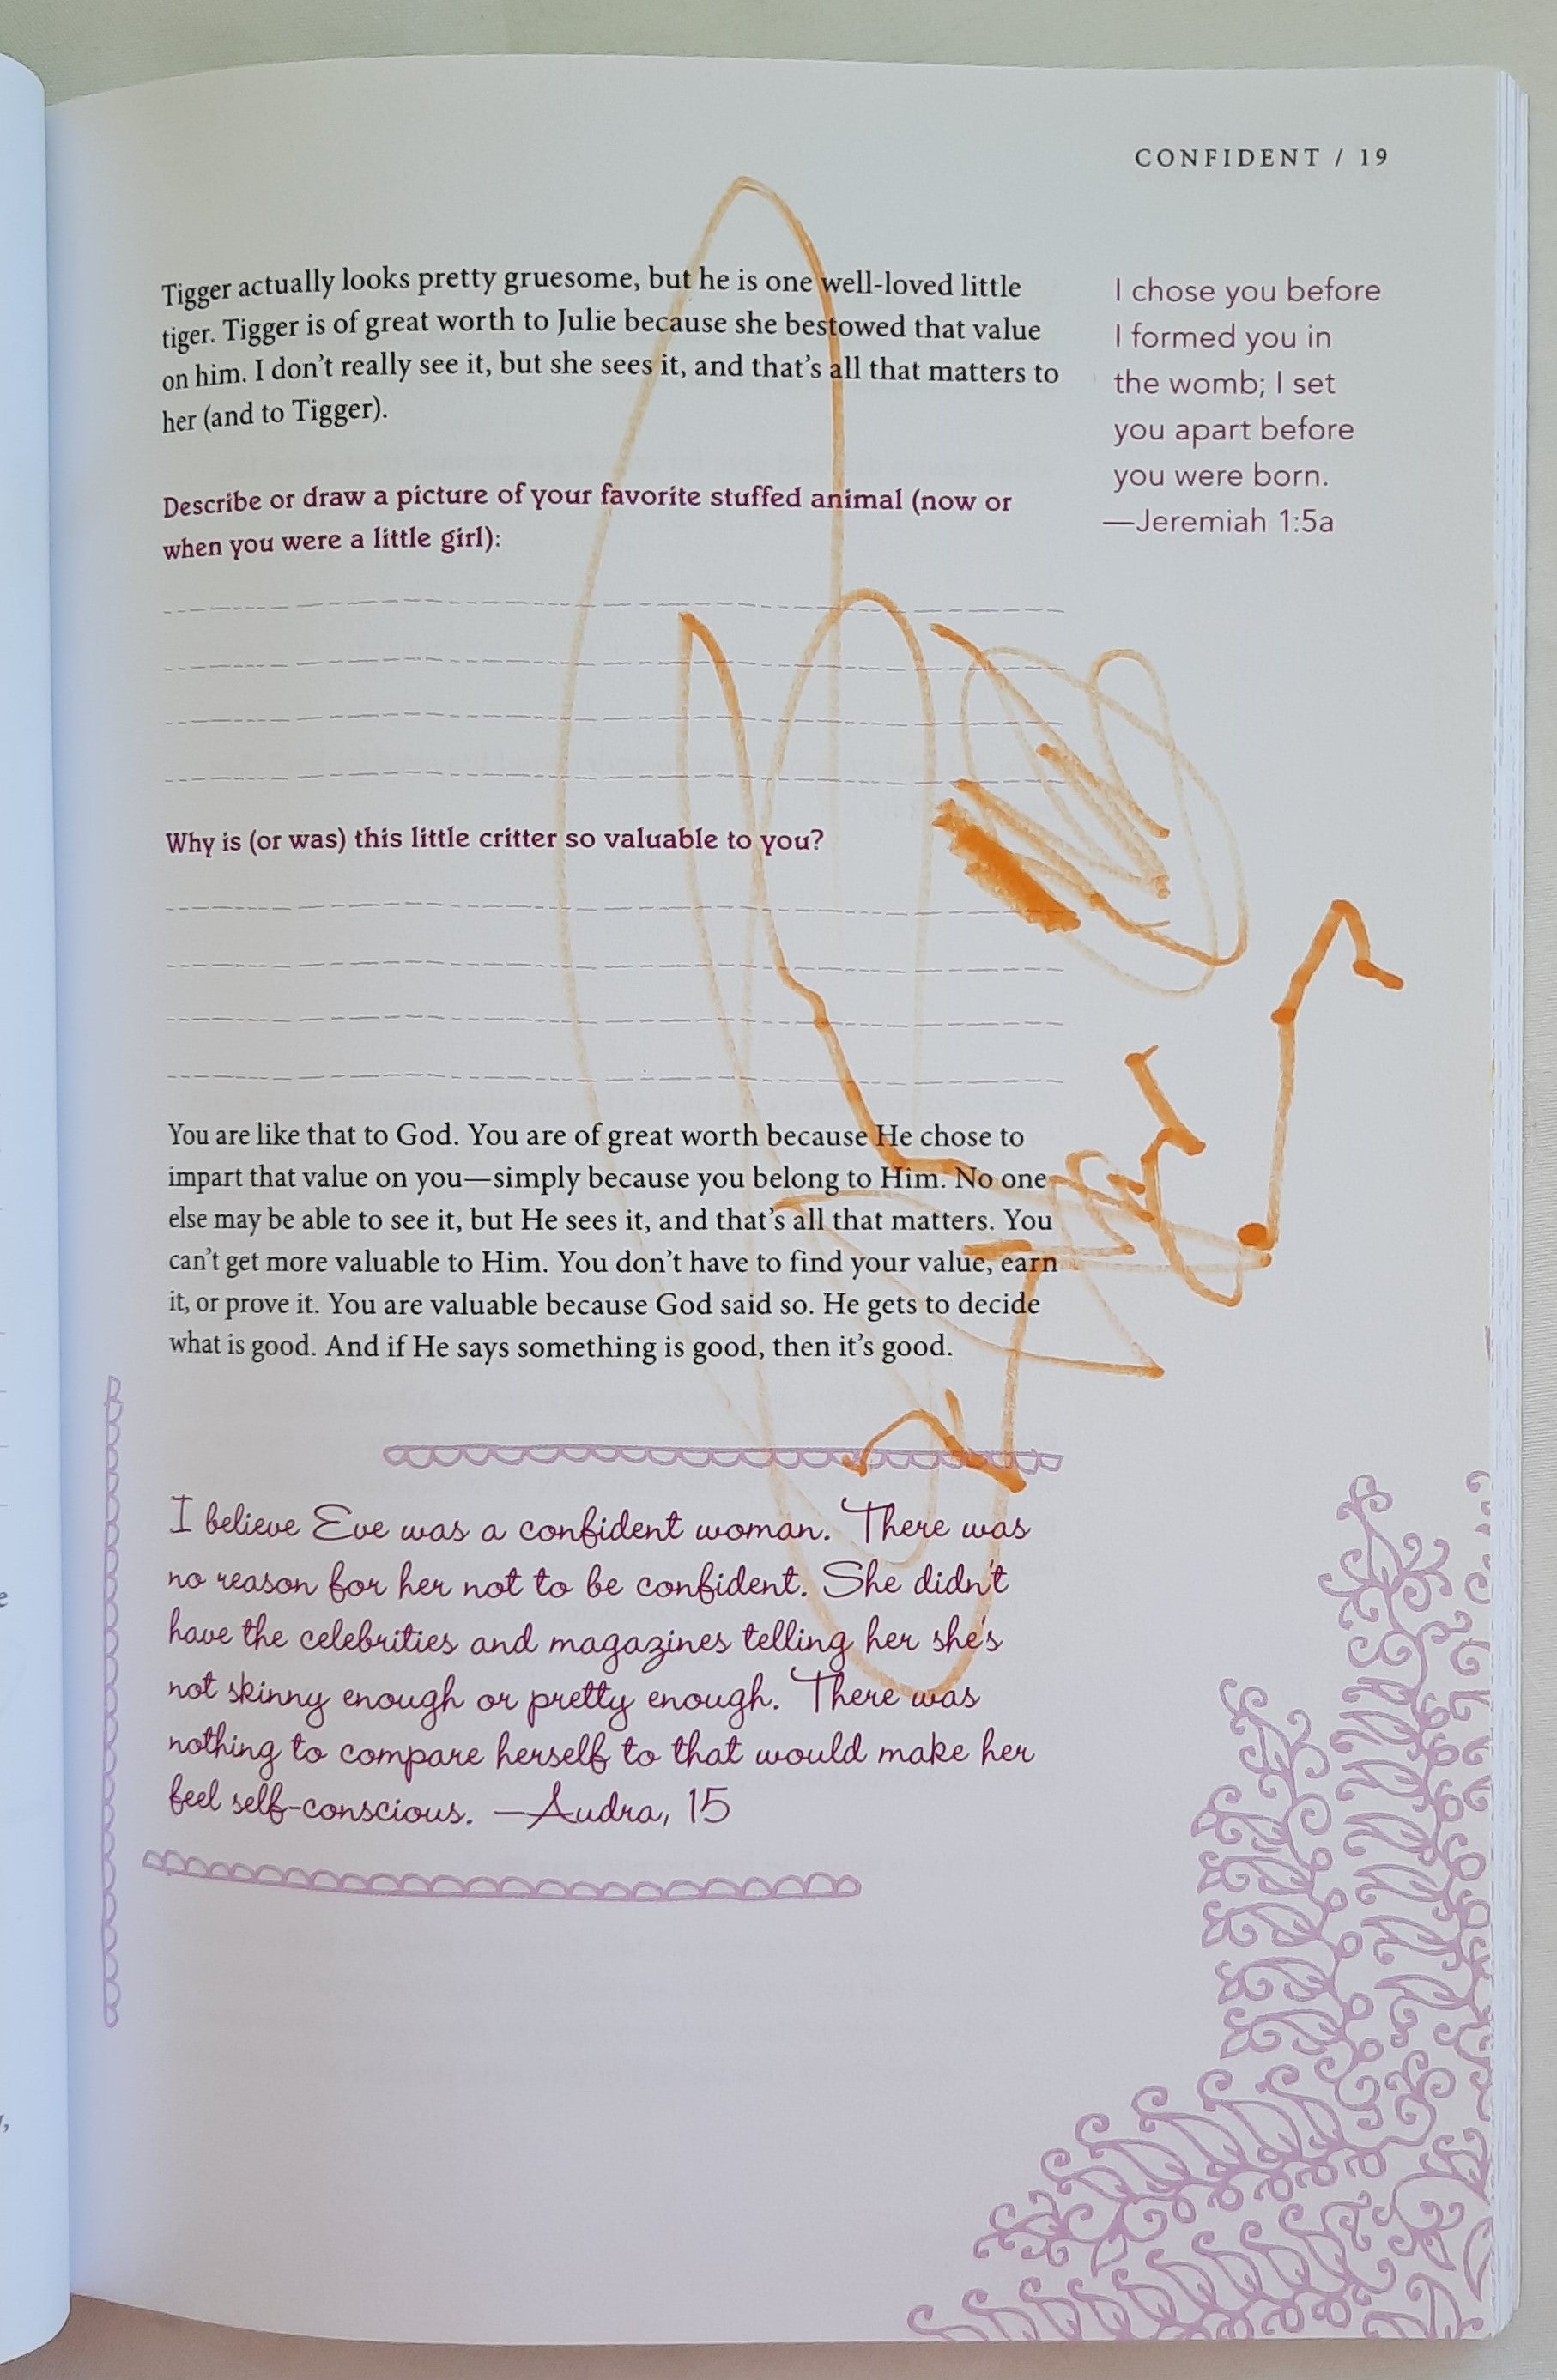 CONFIDENT / 19
Tigger actually looks pretty gruesome, but he is one well-loved little
tiger. Tigger is of great worth to Julie because she bestowed that value
on him. I don't really see it, but she sees it, and that's all that matters to
her (and to Tigger).
I chose you before
I formed you in
the womb; I set
you apart before
you were born.
—Jeremiah 1:5a
Describe or draw a picture of your favorite stuffed animal (now or
when you were a little girl):
Why is (or was) this little critter so valuable to you?
You are like that to God. You are of great worth because He chose to
impart that value on you—simply because you belong to Him. No one
else may be able to see it, but He sees it, and that's all that matters. You
can't get more valuable to Him. You don't have to find your value, earn
it, or prove it. You are valuable because God said so. He gets to decide
what is good. And if He says something is good, then it's good.
I believe Eve was a confident woman. There was
no reason for her not to be confident. She didn't
have the celebrities and magazines telling her she's
not skinny enough or pretty enough. There was
nothing to compare herself to that would make her
feel self-conscious. —Audra, 15